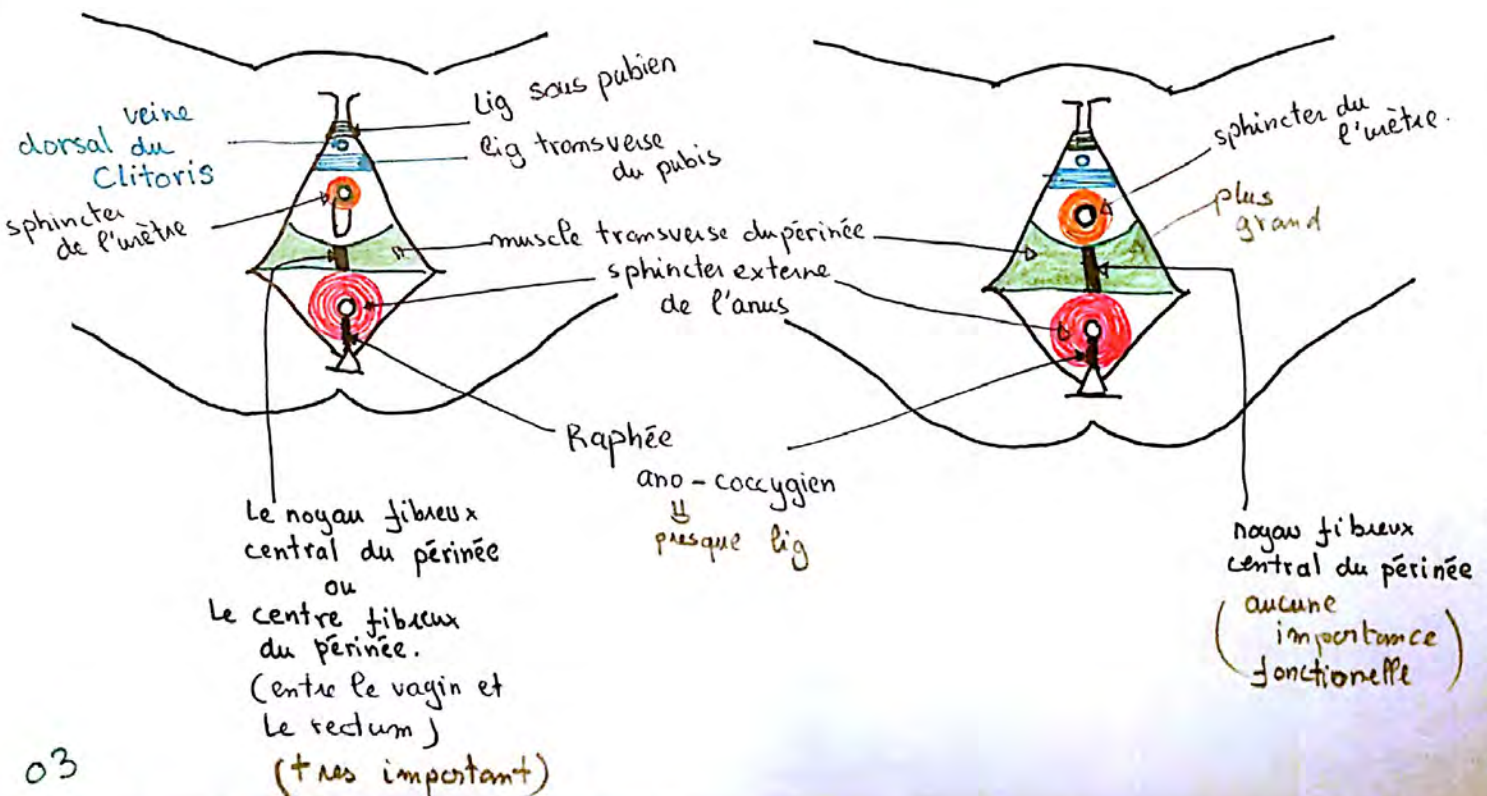 veine
dorsal du
Clitoris
sphincter
de l'urètre
Lig sous pubien
lig transverse
du pubis
muscle transverse du périnée
sphincter externe
de l'anus
Raphée
ano - coccygien
presque lig
Le noyau fibreux
central du périnée
ou
Le centre fibreux
du périnée.
(entre le vagin et
Le rectum)
(très important)
sphincter du
l'urètre.
plus
grand
noyau fibreux
central du périnée
(aucune
importance
fonctionelle)
03